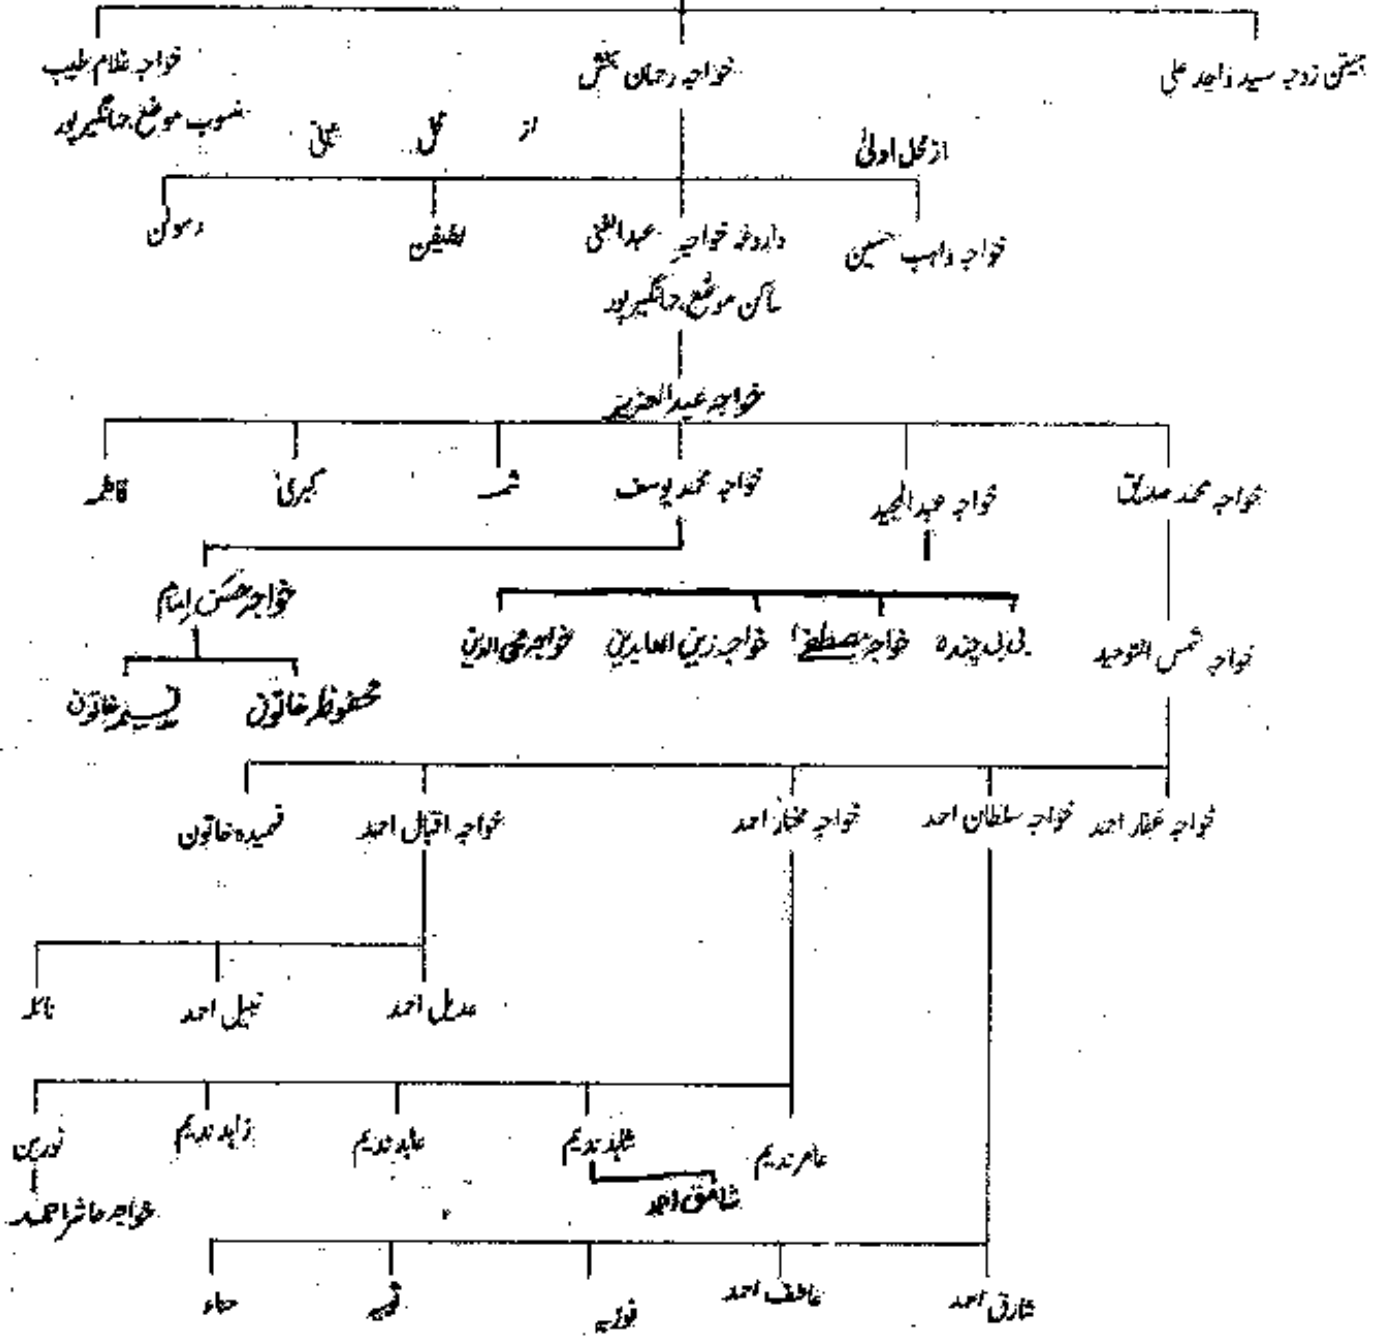 جیتن زوجہ سید واجد علی
خواجہ رحمان بخش
خواجہ غلام طیب
منسوب موضع جہانگیرپور
از محل اولیٰ
از محل ثانی
خواجہ واہب حسین
داروغہ خواجہ عبدالغنی
ساکن موضع جہانگیرپور
لطیفن
رسولن
خواجہ عبدالعزیز
خواجہ محمد صدیق
خواجہ عبدالمجید
خواجہ محمد یوسف
ثمر
کبریٰ
فاطمہ
خواجہ حسن امام
خواجہ شمس التوحید
بی بی چندہ
خواجہ مصطفےٰ
خواجہ زین العابدین
خواجہ محی الدین
محفوظ خاتون
خاتون
خواجہ غفار احمد
خواجہ سلطان احمد
خواجہ مختار احمد
خواجہ اقبال احمد
فہمیدہ خاتون
عدیل احمد
نبیل احمد
نائلہ
عامر ندیم
شاہد ندیم
عابد ندیم
زاہد ندیم
نورین
شافق احمد
خواجہ حاشر احمد
شارق احمد
عاطف احمد
فوزیہ
حناء